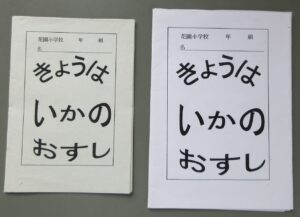 花園小学校 年 組
名
きょうは
いかの
おすし
花園小学校 年 組
名
きょうは
いかの
おすし